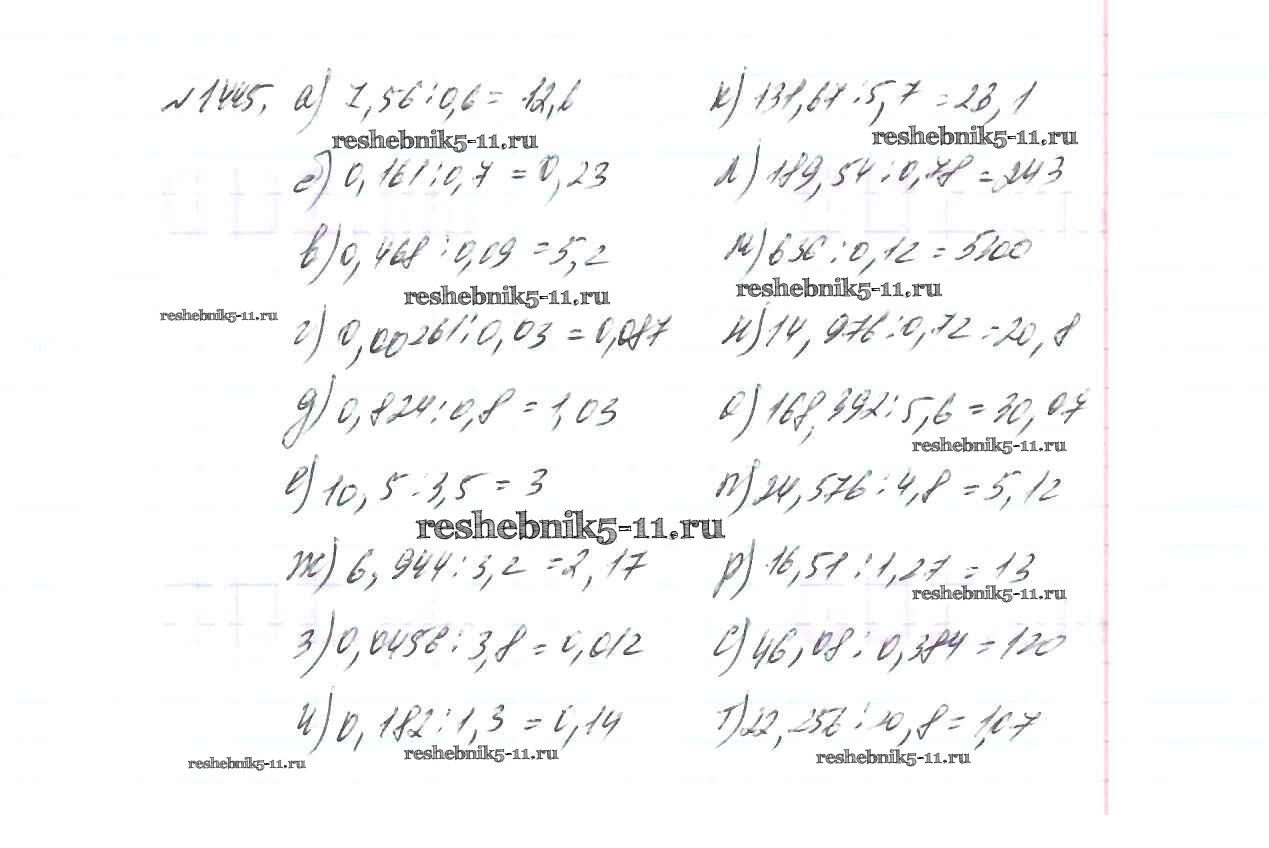 №1445. а) 7,56 : 0,6 = 12,6
reshebnik5-11.ru
б) 0,161 : 0,7 = 0,23
в) 0,468 : 0,09 = 5,2
reshebnik5-11.ru
reshebnik5-11.ru
г) 0,00261 : 0,03 = 0,087
д) 0,824 : 0,8 = 1,03
е) 10,5 : 3,5 = 3
reshebnik5-11.ru
ж) 6,944 : 3,2 = 2,17
з) 0,0456 : 3,8 = 0,012
и) 0,182 : 1,3 = 0,14
reshebnik5-11.ru
reshebnik5-11.ru
к) 131,67 : 5,7 = 23,1
reshebnik5-11.ru
л) 189,54 : 0,78 = 243
м) 636 : 0,12 = 5300
reshebnik5-11.ru
н) 14,976 : 0,72 = 20,8
о) 168,392 : 5,6 = 30,07
reshebnik5-11.ru
п) 24,576 : 4,8 = 5,12
р) 16,51 : 1,27 = 13
reshebnik5-11.ru
с) 46,08 : 0,384 = 120
т) 22,256 : 20,8 = 1,07
reshebnik5-11.ru